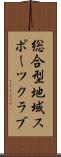 総合型地域ス
ポーツクラブ